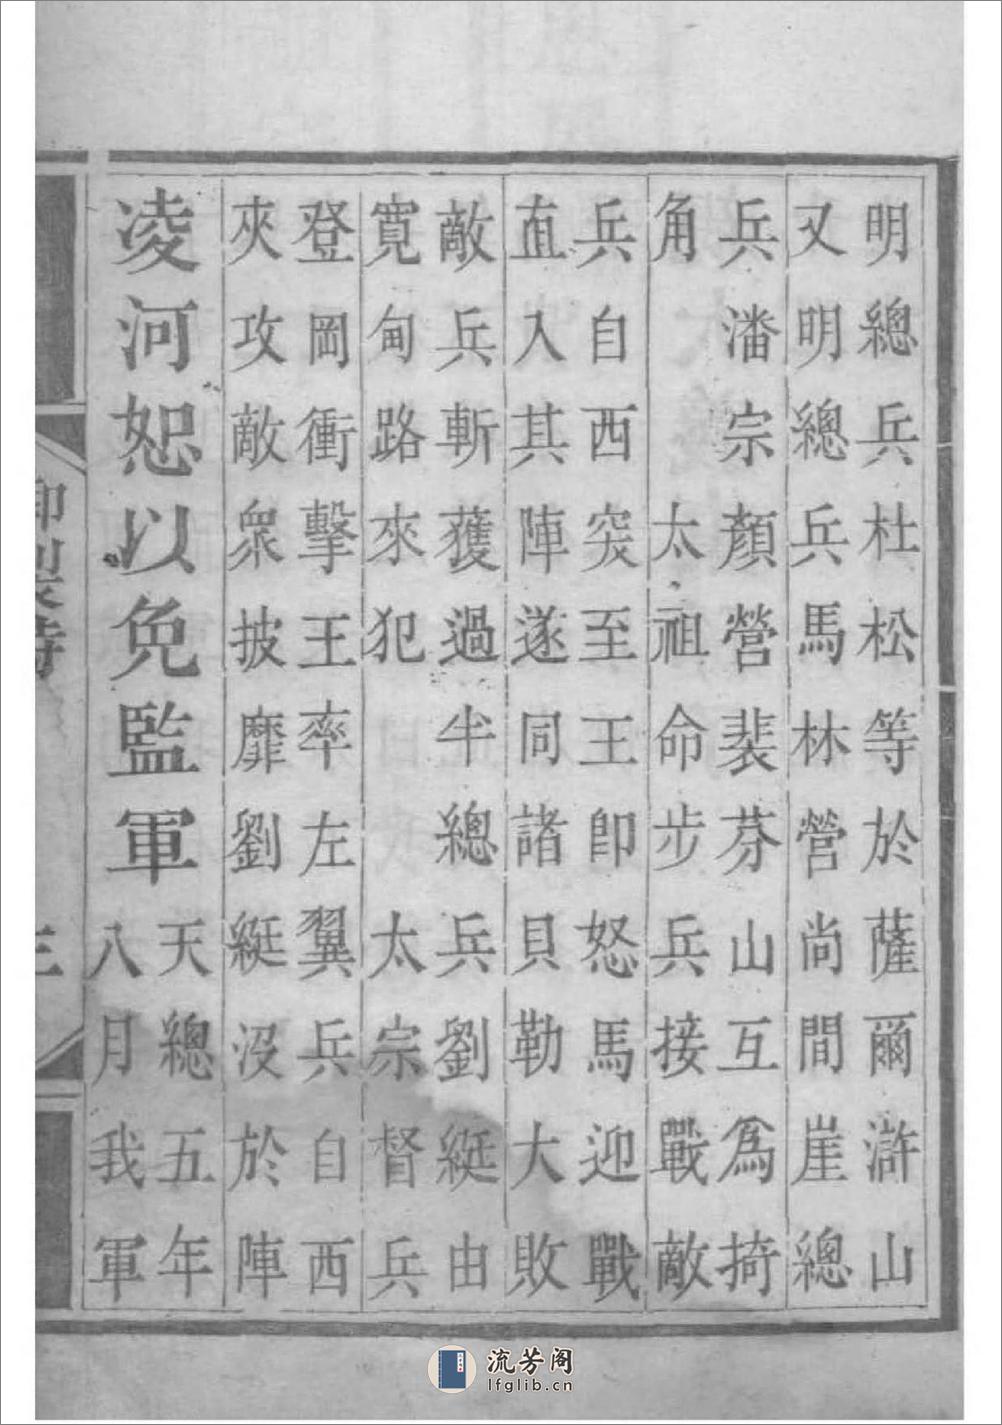 明總兵杜松等於薩爾滸山
又明總兵馬林營尚間崖總
兵潘宗顏營裴芬山互為掎
角　太祖命步兵接戰敵
兵自西突至王卽怒馬迎戰
直入其陣遂同諸貝勒大敗
敵兵斬獲過半總兵劉綎由
寬甸路來犯　太宗督兵
登岡衝擊王率左翼兵自西
夾攻敵衆披靡劉綎沒於陣
凌河恕以免監軍
天總五年
八月我軍
御製詩
三
流芳阁
lfglib.cn